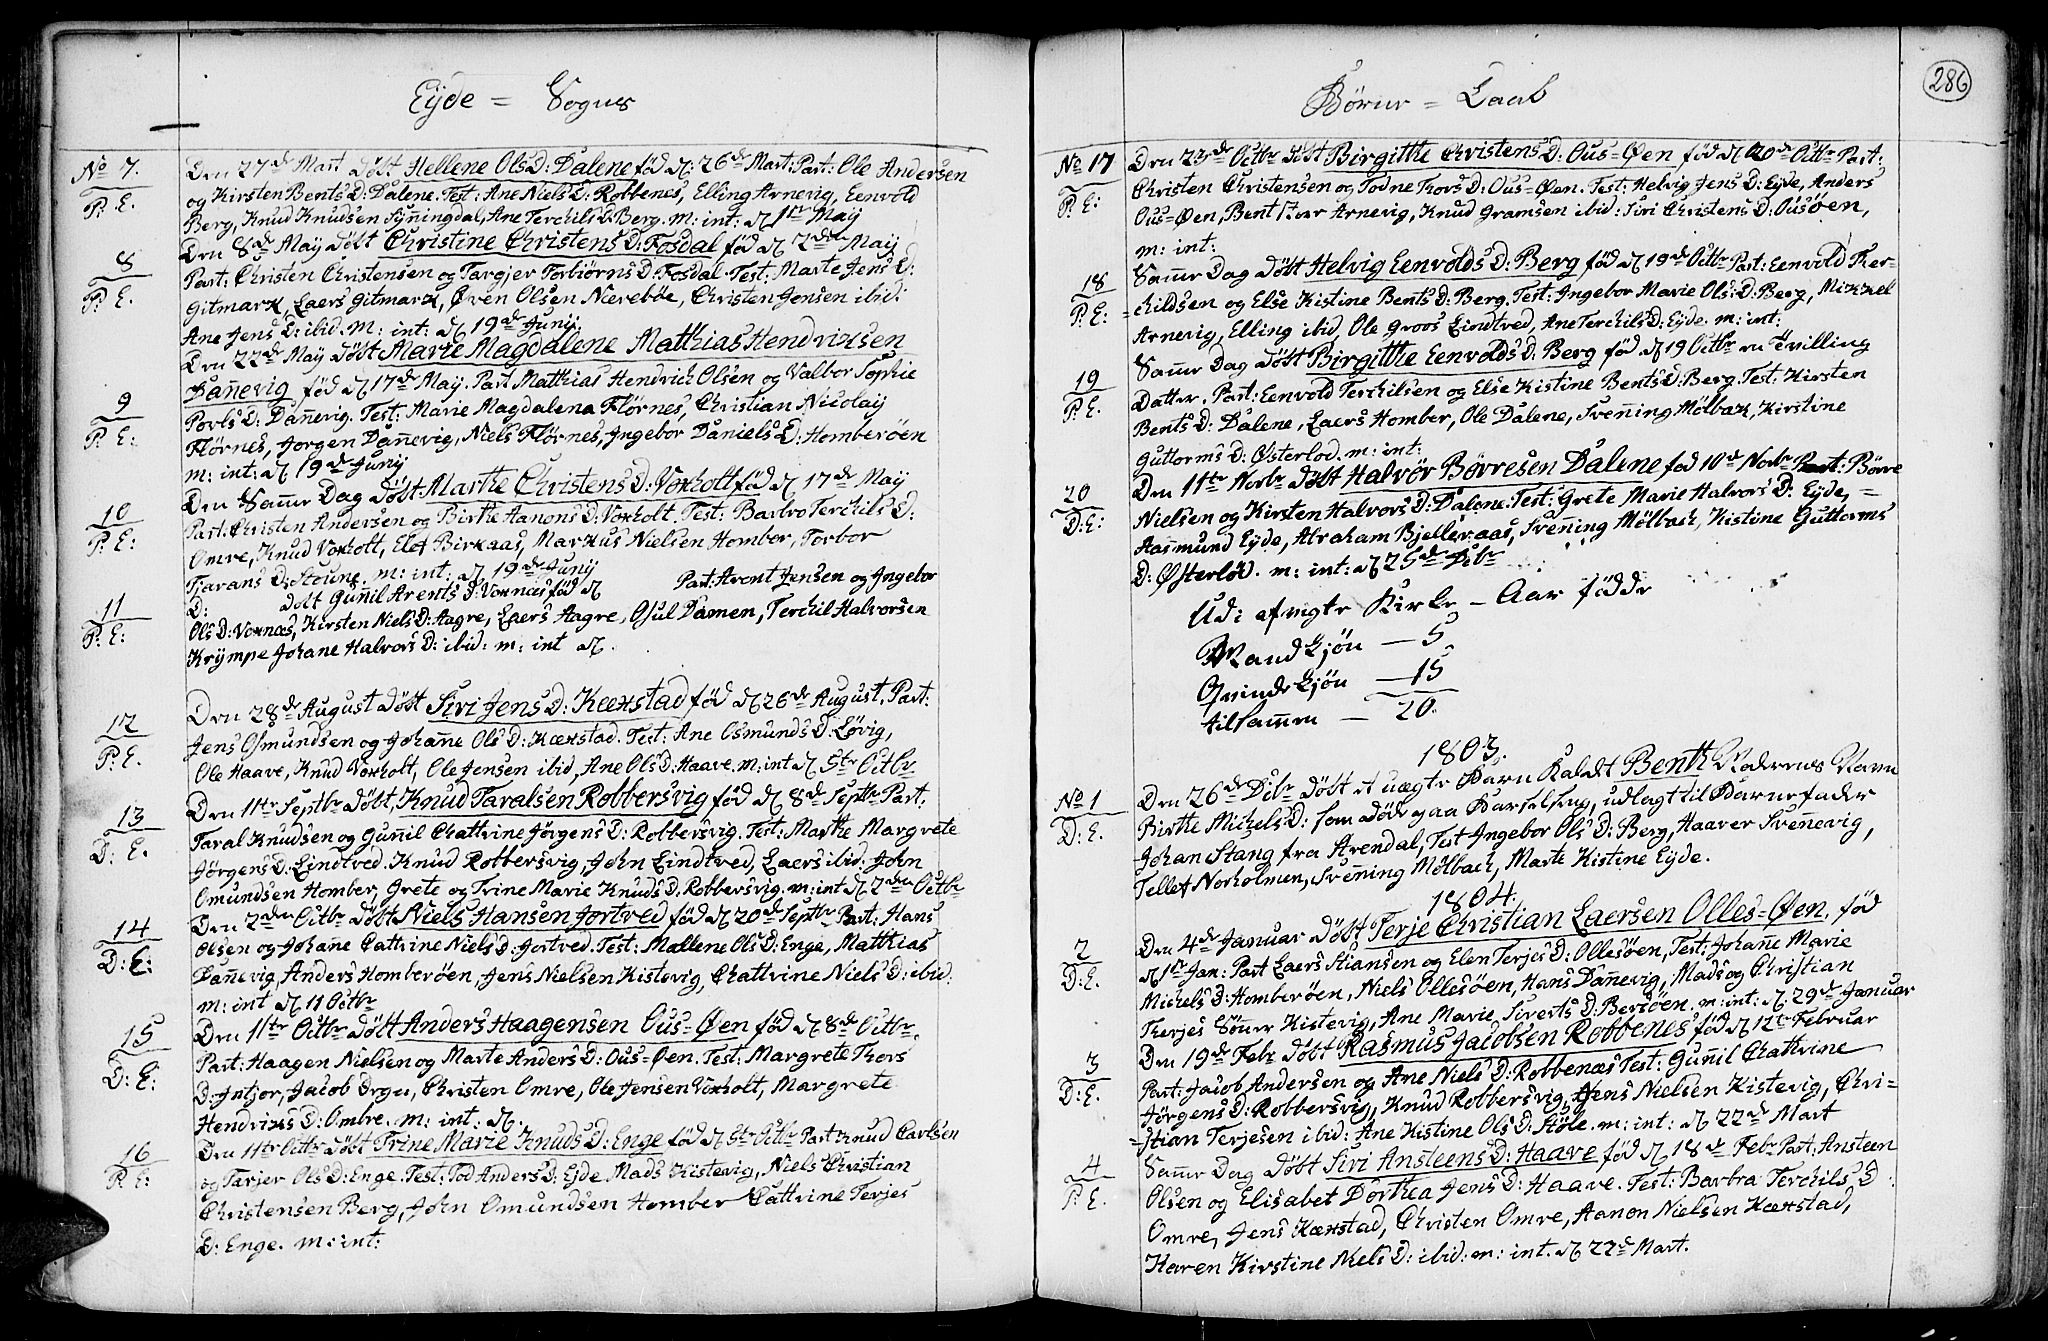 Eÿde = Sogns
No 7.
P: E.
Den 27de Mart døbt Hellene OlsD: Dalene fød d: 26de Mart: Part: Ole Andersen
og Kirsten BentsD: Dalene. Test: Ane NielsD: Robbenes, Elling Arnevig, Eenvold
Berg, Knud Knudsen Syñingdal, Ane TerchilsD: Berg. m: int: d: 1te Maÿ
8
P: E.
Den 8de Maÿ døbt Christine ChristensD: Fosdal fød d: 2den Maÿ
Part: Christen Christensen og Targjer TorbiörnsD: Fosdal. Test: Marte JensD:
Gitmark, Laers Gitmark, Øven Olsen Niereböe, Christen Jensen ibid:
Ane JensD: ibid. m: int: d: 19de Junij
9
P: E:
Den 22de Maÿ døbt Marie Magdalene Matthias Hendrixsen
Dañevig fød d: 17de Maÿ. Part Matthias Hendrich Olsen og Valbor Sophie
PovlsD: Dañevig. Test: Marie Magdalena Flörnes, Christian Nicolaÿ
Flörnes, Jorgen Dañevig, Niels Flörnes, Ingebor DanielsD: Homberöen
m: int: d: 19de Junij
10
P: E:
Den Samme Dag døbt Marthe ChristensD: Voxholt fød d: 17de Maÿ
Part: Christen Andersen og Birthe AanonsD: Voxholt. Test: Barbro TerchilsD:
Omre, Knud Voxholt, Elef Birkaas, Markus Nielsen Homber, Torbor
TjaransD: Steune. m: int: d: 19de Junij
11
P: E:
D: døbt Guñil ArentsD: Voxnæs fød d: Part: Arent Jensen og Ingebor
OlsD: Voxnæs, Kirsten NielsD: Aagre, Laers Aagre, Osul Damen, Terchil Halvorsen
Krÿmpe Johane HalvorsD: ibid: m: int d:
12
P: E.
Den 28de August døbt Siri JensD: Kæxstad fød d: 26de August, Part:
Jens Osmundsen og Johañe OlsD: Kæxstad. Test: Ane OsmundsD: Lövig,
Ole Haave, Knud Voxholt, Ole Jensen ibid, Ane OlsD: Haave. m: int d: 5te Octbr
13
D: E.
Den 11te Septbr døbt Knud Taralsen Robbersvig fød d: 8de Septbr Part.
Taral Knudsen og Guñil Chattrine JörgensD: Robbersvig. Test: Marthe Margrete
JörgensD: Lindtved. Knud Robbersvig, John Lindtved, Laers ibid: John
Omundsen Homber, Grete og Trine Marie KnudsD. Robbersvig. m: int d: 2den Octbr
14
D: E:
Den 2den Octbr døbt Niels Hansen Jortved fød d: 20de Septbr Part: Hans
Olsen og Johane Cattrine NielsD: Jortved. Test: Mallene OlsD: Enge, Matthias
Dañevig, Anders Homberöen, Jens Nielsen Kistevig, Chattrine NielsD: ibid:
m: int d: 11 Octbr
15
D: E:
Den 11te Octbr døbt Anders Haagensen Ous=Øen fød d: 8de Octbr.
Part: Haagen Nielsen og Marte AndersD: Ous=Øen. Test: Margrete Thors
D: Intjor, Jacob Ørge, Christen Omre, Ole Jensen Voxholt, Margrete
HendrixsD: Ombre. m: int. d:
16
P: E:
Den 11te Octbr døbt Trine Marie KnudsD: Enge fød d: 5te Octbr Part Knud Carlsen
og Tarjer OlsD: Enge. Test: Tod AndersD: Ejde, Mads Kistevig, Niels Christian
Christensen Berg, John Omundsen Homber Cattrine Terjes
D: Enge. m: int:
Børne = Daab
286
No 17
P: E:
Den 23de Octbr døbt Birgitthe ChristensD: Ous=Øen fød d: 20de Octbr Part:
Christen Christensen og Todne ThorsD: Ous=Øen. Test: Helvig JensD: Eyde, Anders
Ous=Øen, Bent Ivar Arnevig, Knud Gramsen ibid: Siri ChristensD: Ousöen,
m: int:
18
P: E:
Samme Dag døbt Helvig EenvoldsD: Berg fød d: 19de Octbr Part: Eenvold Ther=
=childsen og Else Kistine BentsD: Berg. Test: Ingebor Marie OlsD: Berg, Mikkel
Arnevig, Elling ibid, Ole Groos Lindtved, Ane TerchilsD: Eyde. m: int:
19
P: E.
Samme Dag døbt Birgitthe EenvoldsD: Berg fød d: 19 Octbr en Tvilling
Datter. Part: Eenvold Terchilsen og Else Kistine BentsD: Berg. Test: Kirsten
BentsD: Dalene, Laers Homber, Ole Dalene, Sveñing Mölbak, Kirstine
GuttormsD: Østerlod. m: int:
20
D: E:
Den 11te Novbr døbt Halvör Börresen Dalene fød 10de Novbr Part: Börre
Nielsen og Kirsten HalvorsD: Dalene. Test: Grete Marie HalvorsD: Eÿde,
Aasmund Eÿde, Abraham Bjelleraas, Svening Mölbach, Kistine Guttorms
D: Østerlöd. m: int: d: 25de Dcbr
Udi afvigte Kirke-Aar fødde
Mandkjøn — 5
Qvindekjøn — 15
tilsammen — 20.
1803.
No 1
D: E.
Den 26de Dcbr døbt et uægte Barn kaldt Benth Moderens Navn
Birthe MichelsD: som døde paa Barselseng, udlagt til Barnefader
Johan Stang fra Arendal, Test Ingebor OlsD: Berg, Haaver Sveñevig,
Tellef Norholmen, Sveñing Mölbach, Marte Kistine Eÿde.
1804.
2
D: E.
Den 4de Januar døbt Terje Christian Laersen Olles=Øen, fød
d: 1te Jan: Part Laers Stiansen og Elen TerjesD: Ollesöen, Test: Johane Marie
MichelsD: Homberöen, Niels Ollesöen, Hans Dañevig, Mads og Christian
Therjes Söner Kistevig, Ane Marie SivertsD: Bersöen. m: int: d: 29de Januar
3
D: E.
Den 19de Febr døbt Rasmus Jacobsen Robbenes fød d: 12te Februar
Part: Jacob Andersen og Ane NielsD: Robbenæs Test: Guñil Chattrine
JörgensD: Robbersvig, Knud Robbersvig, Jens Nielsen Kistevig, Chri=
=stian Terjesen ibid: Ane Kistine OlsD: Stöle. m: int: d: 22de Mart
4
P: E.
Samme Dag døbt Siri AnsteensD: Haave fød d: 18de Febr Part: Ansteen
Olsen og Elisabet Dorthea JensD: Haave. Test: Barbra TerchilsD
Omre, Jens Kæxstad, Christen Omre, Aanon Nielsen Kæxstad,
Karen Kirstine NielsD: ibid: m: int. d: 22de Mart.